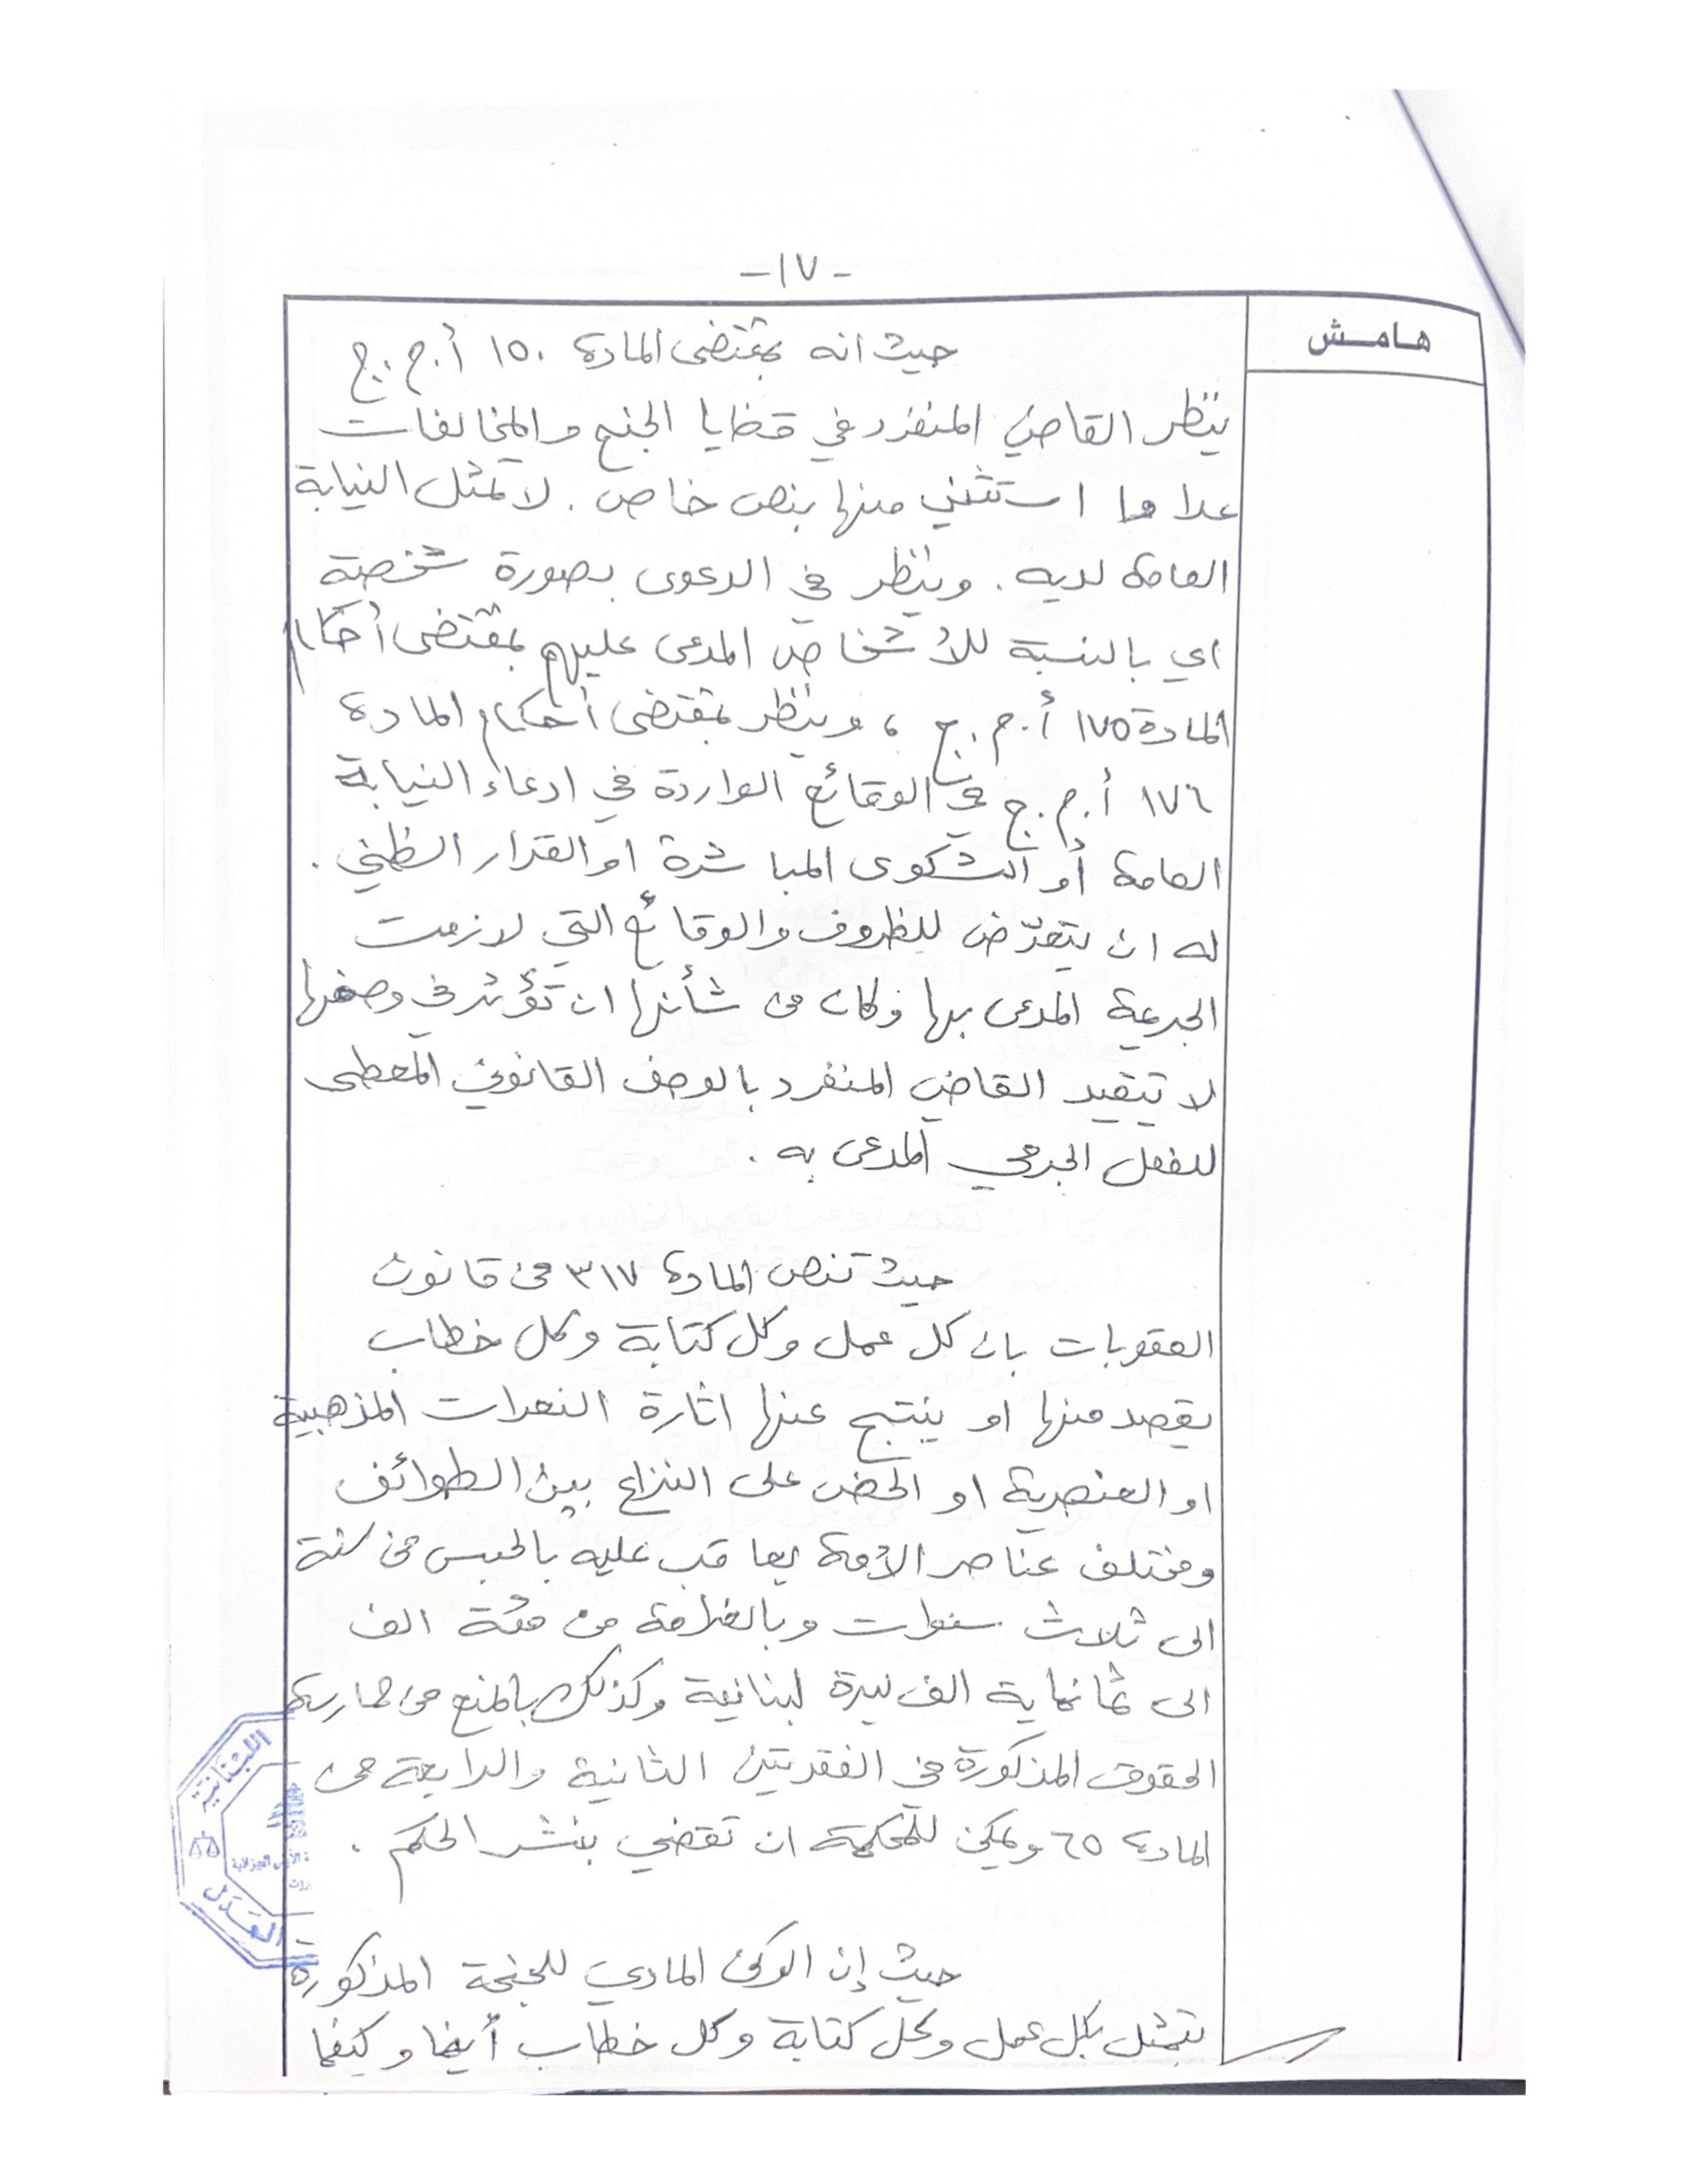 -١٧-
هامش
حيث انه بمقتضى المادة ١٥٠ أ.م.ج
ينظر القاضي المنفرد في قضايا الجنح والمخالفات
عدا ما استثني منها بنص خاص. لا تمثل النيابة
العامة لديه. وينظر في الدعوى بصورة شخصية
اي بالنسبة للأشخاص المدعى عليهم بمقتضى أحكام
المادة ١٧٥ أ.م.ج ، وينظر بمقتضى أحكام المادة
١٧٦ أ.م.ج في الوقائع الواردة في ادعاء النيابة
العامة أو الشكوى المباشرة او القرار الظني.
له ان يتعرّض للظروف والوقائع التي لازمت
الجريمة المدعى بها وكان من شأنها ان تؤثر في وصفها
لا يتقيد القاضي المنفرد بالوصف القانوني المعطى
للفعل الجرمي المدعى به.
حيث تنص المادة ٣١٧ من قانون
العقوبات بان كل عمل وكل كتابة وكل خطاب
يقصد منها او ينتج عنها اثارة النعرات المذهبية
او العنصرية او الحض على النزاع بين الطوائف
ومختلف عناصر الأمة يعاقب عليه بالحبس من سنة
الى ثلاث سنوات وبالغرامة من مئة الف
الى ثمانماية الف ليرة لبنانية وكذلك بالمنع من ممارسة
الحقوق المذكورة في الفقرتين الثانية والرابعة من
المادة ٦٥ ويمكن للمحكمة ان تقضي بنشر الحكم.
حيث إن الركن المادي للجنحة المذكورة
يتمثل بكل عمل وكل كتابة وكل خطاب أيضا وكيفما
اللبنانية
الجزائية
العدل